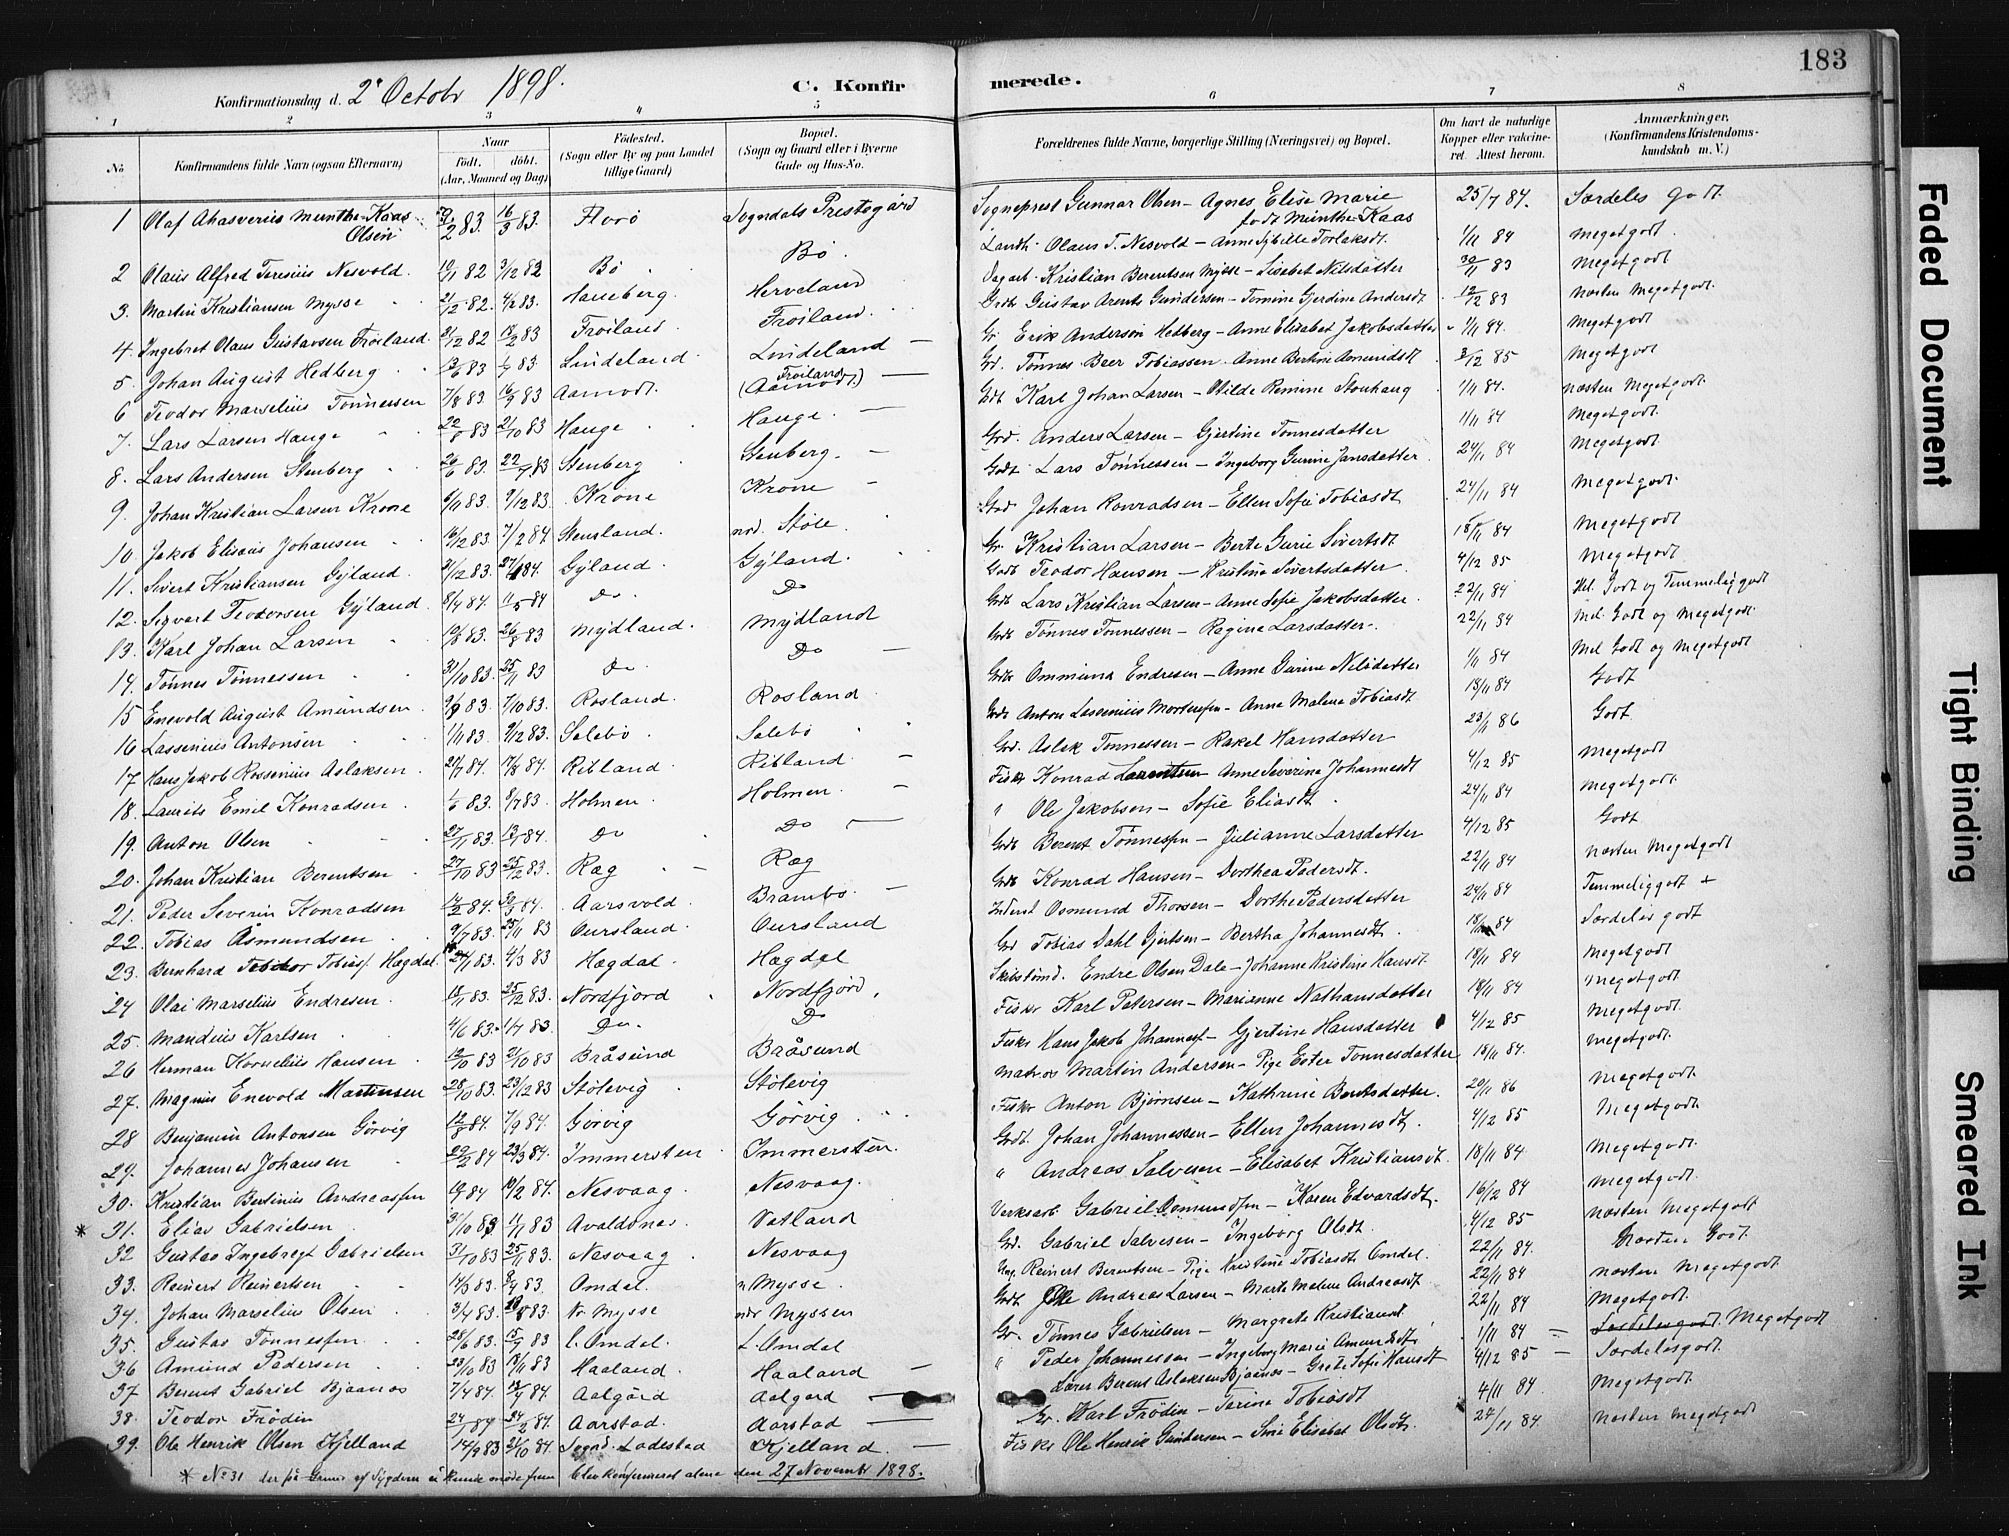 183
Konfirmationsdag d. 2 Octobr 1898.
C. Konfirmerede.
1 2 3 4 5 6 7 8
No
Konfirmandens fulde Navn (ogsaa Efternavn)
Naar født. døbt. (Aar, Maaned og Dag)
Fødested. (Sogn eller By og paa Landet tillige Gaard)
Bopæl. (Sogn og Gaard eller i Byerne Gade og Hus-No.
Forældrenes fulde Navne, borgerlige Stilling (Næringsvei) og Bopæl.
Om havt de naturlige Kopper eller vakcineret. Attest herom.
Anmærkninger. (Konfirmandens Kristendomskundskab m. V.)
1 Olaf Ahasverius Munthe-Kaas Olsen 83 16/3 83. Florø Sogndals Prestegård Sogneprest Gunnar Olsen - Agnes Elise Marie født Munthe-Kaas 25/7 84. Særdeles godt.
2 Olaus Alfred Teresius Nesvold. 82 9/12 82 Bø Bø. Olaus T. Nesvold - Anne Sybille Torlaksdt. 1/11 84 Megetgodt.
3. Martin Kristiansen Mysse 21/12 82. 4/2 83. Haneberg. Herveland Kristian Berentsen Mysse - Lisabet Nilsdatter 30/11 83 Megetgodt
4 Ingebret Olaus Gustavsen Frøiland. 31/12 82 83 Frøiland. Frøiland. Gustav Arents Gundersen - Tomine Gjerdine Andersdt. 12/12 83 næsten Megetgodt.
5. Johan August Hedberg 83 83. Lindeland Lindeland Erik Anderson Hedberg - Anne Elisabet Jakobsdatter 1/11 84. Megetgodt
6 Teodor Marselius Tønnessen 7/8 83. 16/9 83 Aamodt. Frøiland (Aamodt.) Tønnes Beer Tobiassen - Anne Bertine Asmundsdt. 3/12 85 Megetgodt
7. Lars Larsen Hauge 22/8 83 21/10 83 Hauge Hauge. Karl Johan Larsen - Otilde Remine Stenhaug 1/11 84. næsten Megetgodt.
8. Lars Andersen Stenberg 83. 22/7 83 Stenberg Stenberg. Anders Larsen - Gjertine Tønnesdatter 1/11 84 Megetgodt.
9. Johan Kristian Larsen Krone 6/11 83 9/12 83. Krone Krone Lars Tønnessen - Ingeborg Gurine Jansdatter 24/11 84 Megetgodt.
10. Jakob Elisæus Johansen 16/12 83. 7/2 84 Stensland. nrd. Støle. Johan Konradsen - Ellen Sofie Tobiasdt 24/11 84 Megetgodt.
11. Sivert Kristiansen Gyland. 31/12 83. 84. Gyland. Gyland. Kristian Larsen - Berte Gurie Sivertsdt. 18/11 84 Megetgodt
12. Sigvart Teodorsen Gyland. 8/4 84. 11/5 84 Do. Do Teodor Hansen - Kristine Sivertsdatter 4/12 85 Megetgodt.
13. Karl Johan Larsen 83. 26/8 83 Mydland. Mydland Lars Kristian Larsen - Anne Sofie Jakobsdatter. 22/11 84 Mel. Godt og Temmeliggodt
14. Tønnes Tønnessen 31/10 83. 25/11 83 Do. Do Tønnes Tønnessen - Regine Larsdatter. 22/11 84 Mel. Godt og Megetgodt.
15 Enevold August Amundsen. 9/9 83 7/10 83. Rosland. Rosland. Ommund Endresen - Anne Gurine Nilsdatter 1/11 84 Mel Godt og Megetgodt
16 Lassenius Antonsen 1/11 83. 9/12 83. Selebø. Selebø Anton Lassenius Mortensen - Anne Malene Tobiasdt 18/11 84 Godt
17 Hans Jakob Rossenius Aslaksen 84. 17/8 84. Ribland. Ribland. Aslak Tønnessen - Rakel Hansdatter 23/11 86 Godt
18. Laurits Emil Konradsen 83. 8/7 83. Holmen. Holmen. Fiskr Konrad Larentsen - Anne Severine Johannesdt 4/12 85 Megetgodt
19. Anton Olsen 27/11 83. 13/1 84. Do Do " Ole Jakobsen - Sofie Eliasdt. 24/11 84 Megetgodt.
20. Johan Kristian Berentsen 27/10 83 25/12 83. Ræg Ræg Berent Tønnessen - Julianne Larsdatter 4/12 85 Godt
21. Peder Severin Konradsen 84. 84. Aarsvold. Brambo. Konrad Hansen - Dorthea Pedersdt. 22/11 84 næsten Megetgodt
22. Tobias Åsmundsen 9/7 83. 25/11 83 Oursland. Oursland Osmund Thorsen - Dorthe Pedersdatter 24/11 84 Temmeliggodt +
23. Bernhard Teodor Tobiass. Hægdal. 83. 4/3 83 Hægdal. Hægdal Tobias Dahl Gjertsen - Bertha Johannesdt. 84 Særdeles godt
24 Olai Marselius Endresen. 83. 25/12 83. Nordfjord Nordfjord. Endre Olsen Dale - Johanne Kristine Hansdt. 18/11 84 Megetgodt
25. Mandius Karlsen 4/6 83. 1/7 83. Do. Do Fiskr Karl Petersen - Marianne Nathansdatter 18/11 84 Megetgodt
26 Herman Kornelius Hansen 12/10 83 21/10 83 Bråsund Bråsund Fiskr Hans Jakob Johannesf - Gjertine Hansdatter 4/12 85 Megetgodt.
27. Magnus Enevold Martinsen 28/10 83. 23/12 83 Stølevig Stølevig Matros Martin Andersen - Pige Ester Tonnesdatter 18/11 84. Megetgodt.
28 Benjamin Antonsen Gørvig 12/8 84. 7/9 84. Gørvig Gørvig Fiskr Anton Bjørnsen - Kathrine Berntsdatter. 20/11 86 Megetgodt
29. Johannes Johansen 84 23/3 84. Immersten Immersten. Johan Johannessen - Ellen Johannesdt. 4/12 85 Megetgodt.
30. Kristian Bertinius Andreassen 84 10/2 84. Nesvaag. Nesvaag. " Andreas Salvesen - Elisabet Kristiansdt. 18/11 84 Megetgodt.
* 31. Elias Gabrielsen 83 83 Avaldsnes. Vatland Gabriel Osmundsen - Karen Edvardsdt. 16/12 84 Megetgodt.
32 Gustav Ingebregt Gabrielsen 31/10 83 25/11 83. Nesvaag Nesvaag Gabriel Salvesen - Ingeborg Olsdt. 4/12 85 næsten Megetgodt
33. Reinert Reinertsen 14/3 83. 83. Omdal. n Mysse. Reinert Berentsen - Pige Kristine Tobiasdt Omdal. 22/11 84. Næsten Godt
34. Johan Marselius Olsen 3/4 83. 83. Nr. Mysse ndr Myssen Ole Andreas Larsen - Marte Malene Andreasdt 22/11 84 næsten Megetgodt
35. Gustav Tønnessen 25/6 83. 83 l. Omdal. L. Omdal Tønnes Gabrielsen - Margrete Kristiansd. 22/11 84 Megetgodt.
36 Amund Pedersen 23/10 83 83 Haaland. Haaland " Peder Johannessen - Ingeborg Marie Amundsdt. 1/11 84 Særdelesgodt. Megetgodt
37 Berent Gabriel Bjaanæs 7/4 84. 84. Aalgård Aalgard Lærer Berent Aslaksen Bjaanæs - Grete Sofie Hansdt 4/12 85 Særdelesgodt.
38. Teodor Frødin 84 84. Aarstad. Aarstad Karl Frödin - Tarine Tobiasdt 4/11 84. Megetgodt.
39. Ole Henrik Olsen Kjelland 14/9 83 84. Sognd. Ladested Kjelland. Fiskr Ole Henrik Gundersen - Sine Elisabet Olsdtr. 24/11 84. Næsten Megetgodt
* No 31 der på Grund af Sygdom ei kunde møde frem blev konfirmeret alene den 27 Novembr 1898.
Faded Document
Tight Binding
Smeared Ink